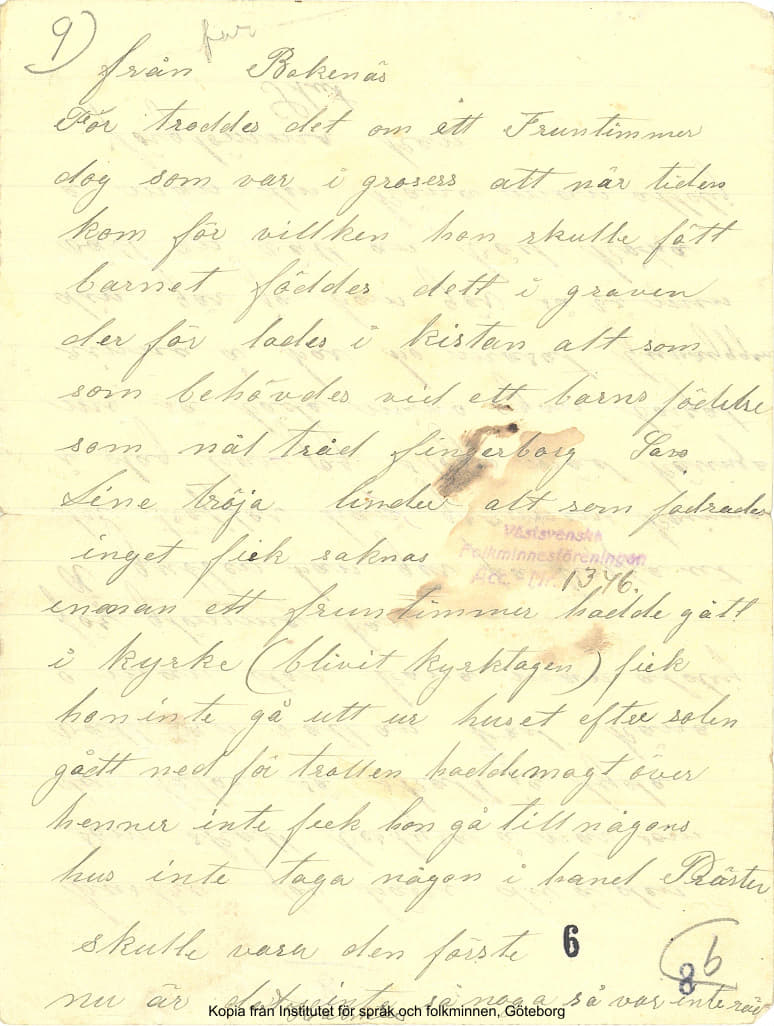 9)
från Bokenäs
För troddes det om ett Fruntimmer
dog som var i grosess att när tiden
kom för villken hon skulle fått
barnet föddes dett i graven
der för lades i kistan alt som
som behövdes vid ett barns födelse
som nål tråd fingerborg Sax
Line tröja lindor alt som fodrades
inget fick saknas
Västsvenska
Folkminnesföreningen
Acc. Nr. 1346.
innan ett fruntimmer hadde gått
i kyrke (blivit kyrktagen) fick
hon inte gå utt ur huset efter solen
gått ned för trollen hadde magt över
henner inte feck hon gå till någons
hus inte taga någon i hand Präster
skulle vara den förste
6
8 b
nu är inte så noga så var inte
Kopia från Institutet för språk och folkminnen, Göteborg